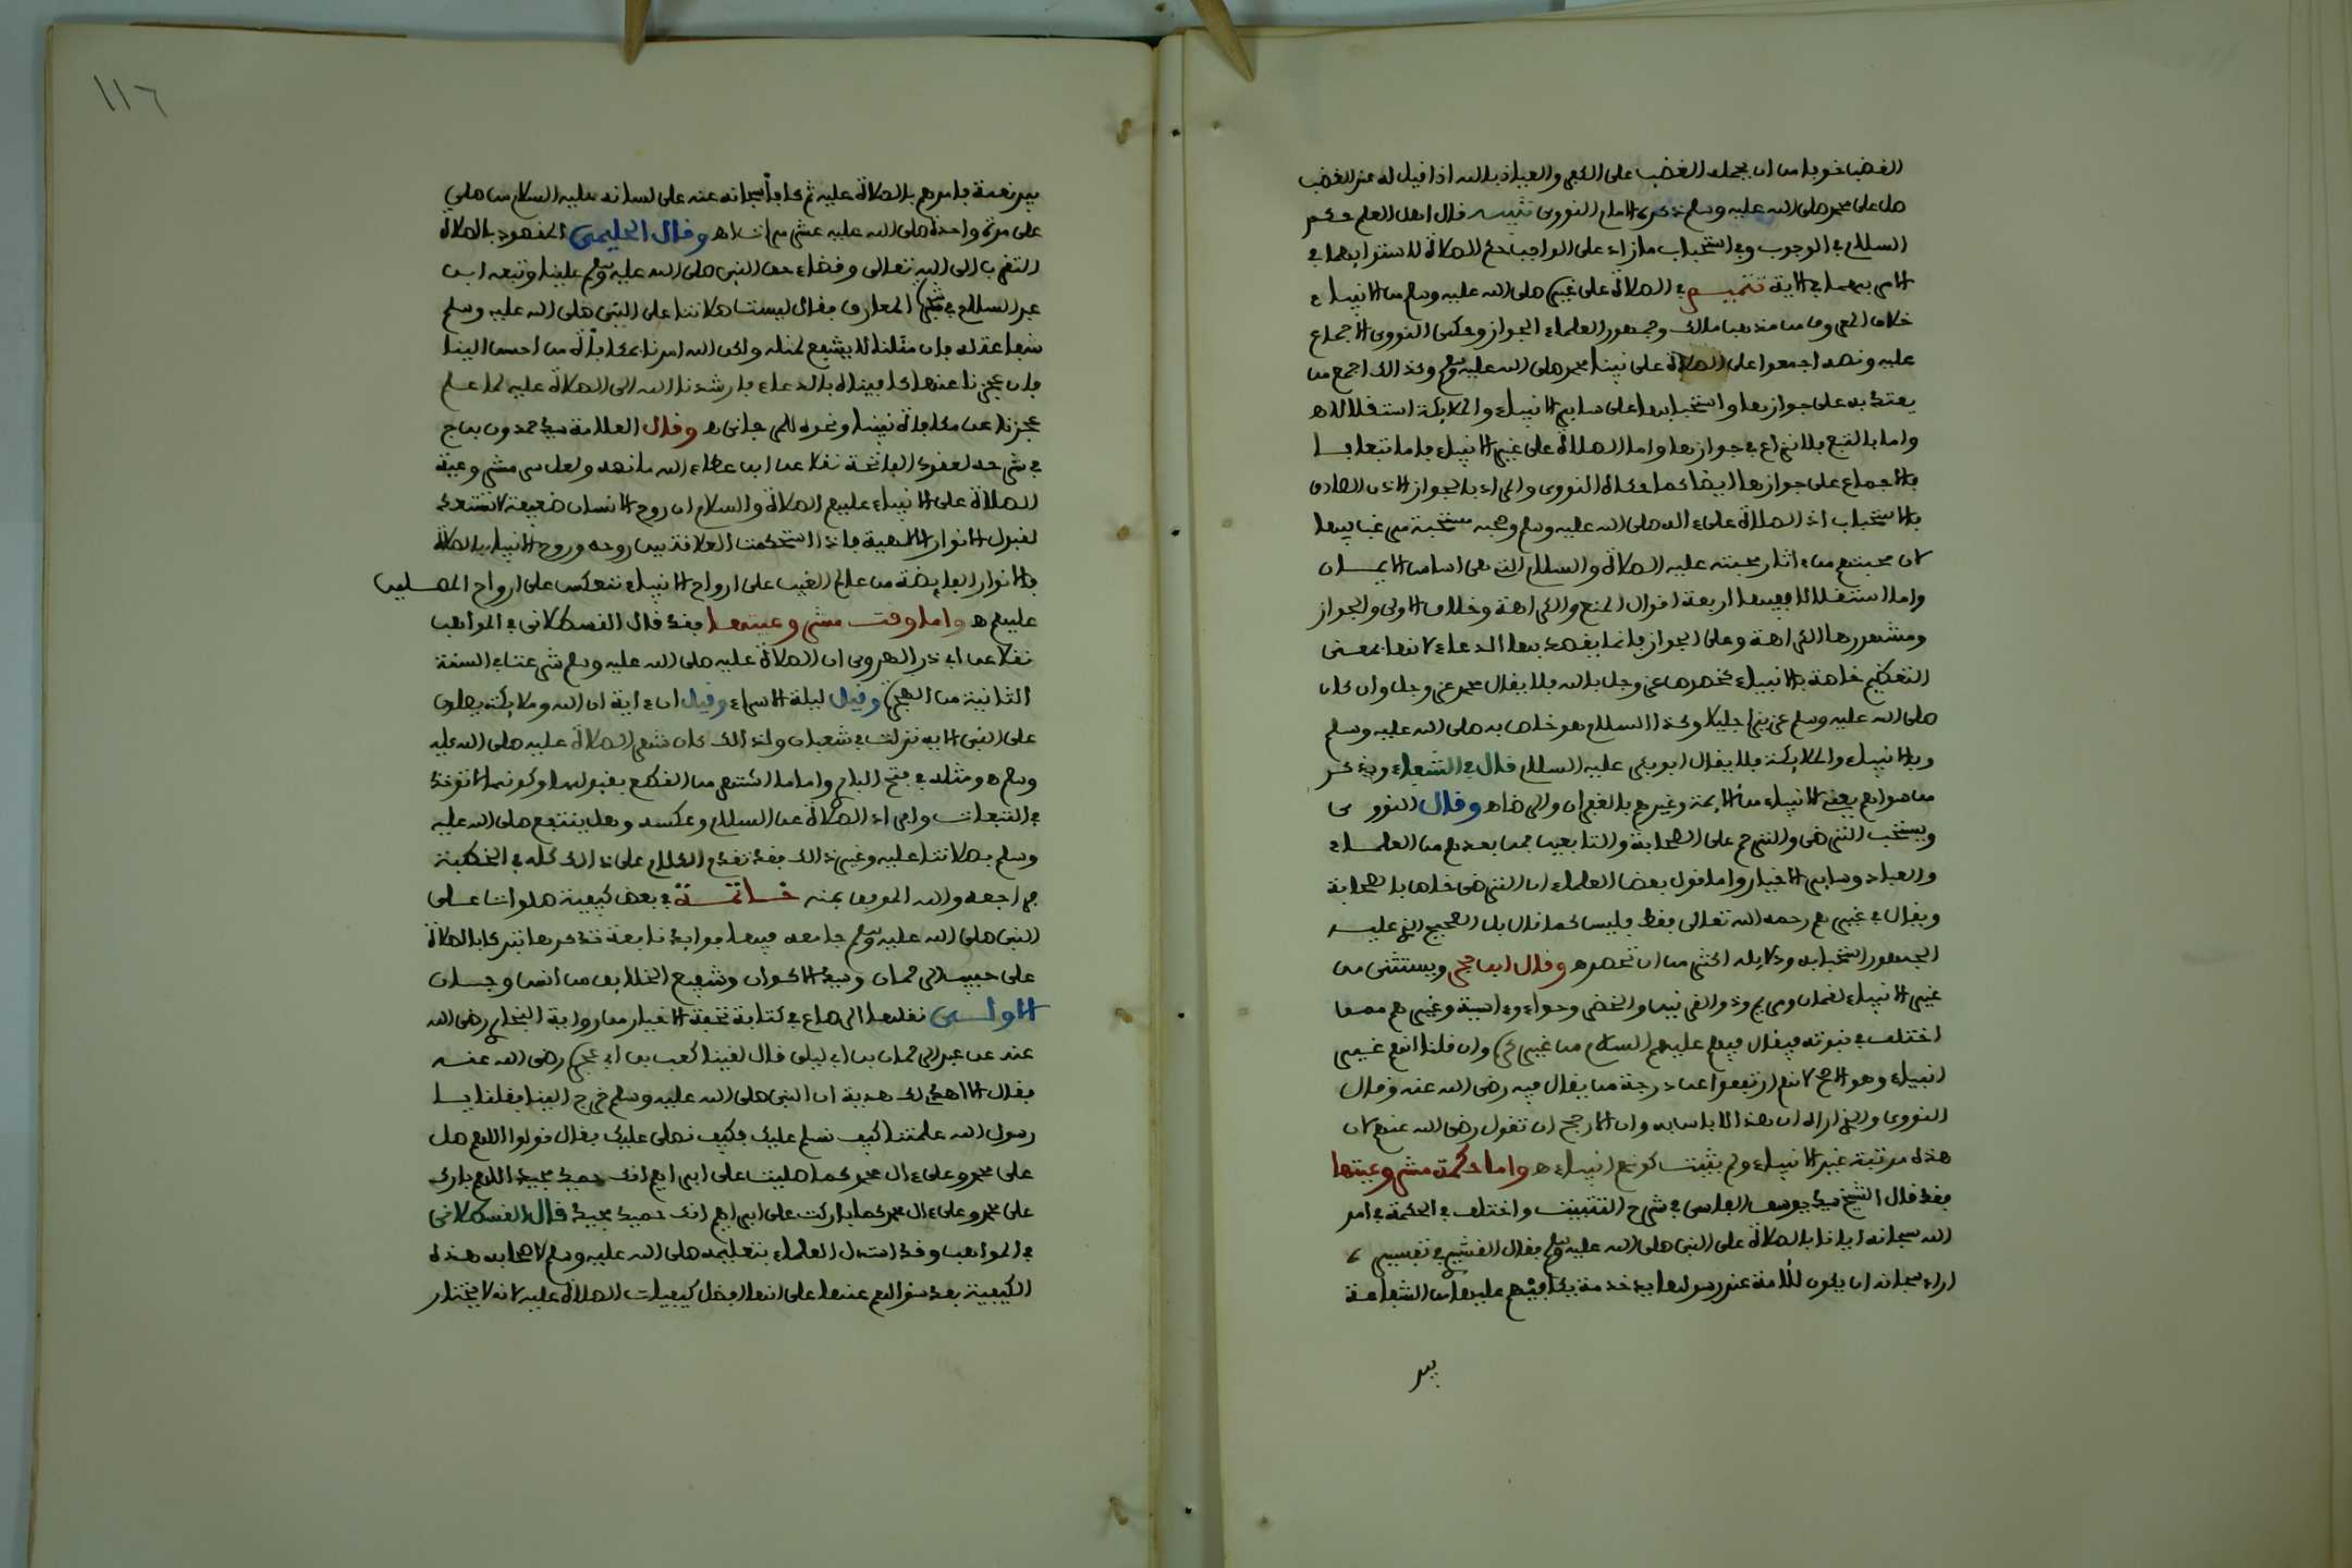 الغضب خوفا من ان يحمله الغضب على الكفر والعياذ بالله اذا قيل له عند الغضب
صل على محمد صلى الله عليه وسلم ذكره الامام النووي تنبيه قال اهل العلم حكم
السلام في الوجوب وفي استحباب ما زاد على الواجب حكم الصلاة لاستوايهما في
الامر بهما في الاية تتميم في الصلاة على غيره صلى الله عليه وسلم من الانبياء
خلاف المعروف من مذهب مالك وجمهور العلماء الجواز وحكى النووي الاجماع
عليه ونصه اجمعوا على الصلاة على نبينا محمد صلى الله عليه وسلم وكذالك اجمع من
يعتد به على جوازها واستحبابها على ساير الانبياء والملايكة استقلالا اه
واما بالتبع فلا نزاع في جوازها واما الصلاة على غير الانبياء فاما تبعا فـ
بالاجماع على جوازها ايضا كما حكاه النووي والمراد بالجواز الاذن الصادق
بالاستحباب اذ الصلاة على ءاله صلى الله عليه وسلم وصحبه مستحبة مرغب فيها
لان محبتهم من ءاثار محبته عليه الصلاة والسلام التي هي اساس الايمان
واما استقلالا ففيها اربعة اقوال المنع والكراهة وخلاف الاولى والجواز
ومشهورها الكراهة وعلى الجواز فانما يقصد بها الدعاء لانها بمعنى
التعظيم خاصة بالانبياء كخصوص عز وجل بالله فلا يقال محمد عز وجل وان كان
صلى الله عليه وسلم عزيزا جليلا وكذا السلام هو خاص به صلى الله عليه وسلم
وبالانبياء والملايكة فلا يقال ابو بكر عليه السلام قال في الشفاء ويذكر
من سواهم يعني الانبياء من الايمة وغيرهم بالغفران والرضا اه وقال النووي
ويستحب الترضي والترحم على الصحابة والتابعين فمن بعدهم من العلماء
والعباد وساير الاخيار واما قول بعض العلماء ان الترضي خاص بالصحابة
ويقال في غيرهم رحمه الله تعالى فقط فليس كما قال بل الصحيح الذي عليه
الجمهور استحبابه ودلايله اكثر من ان تحصر اه وقال ابن حجر ويستثنى من
غير الانبياء لقمان ومريم وذو القرنين والخضر وحواء وءاسية وغيرهم ممن
اختلف في نبوته فيقال فيهم عليهم السلام من غير كره وان قلنا انهم غير
انبياء وهو الاصح لانهم ارتفعوا عن درجة من يقال فيه رضي الله عنه وقال
النووي والذي اراه ان هذا لا باس به وان الارجح ان تقول رضي الله عنهم لان
هذه مرتبة غير الانبياء ولم يثبت كونهم انبياء اه واما حكمة مشروعيتها
فقد قال الشيخ سيد يوسف الفاسي في شرح التثبيت واختلف في الحكمة في امر
الله سبحانه ايانا بالصلاة على النبي صلى الله عليه وسلم فقال القشيري في تفسيره
اراد سبحانه ان يكون للامة عند رسولها يد خدمة يكافيهم عليها من الشفاعة
بيد
١١٦
بيد نعمة فامرهم بالصلاة عليه ثم كافا سبحانه عنه على لسانه عليه السلام من صلى
على مرة واحدة صلى الله عليه عشر مرات اه وقال الحليمي المقصود بالصلاة
التقرب الى الله تعالى وقضاء حق النبي صلى الله عليه وسلم علينا وتبعه ابن
عبد السلام في شجرة المعارف فقال ليست صلاتنا على النبي صلى الله عليه وسلم
شفاعة له فان مثلنا لا يشفع لمثله ولكن الله امرنا بمكافاة من احسن الينا
فان عجزنا عنها كافيناه بالدعاء فارشدنا الله الى الصلاة عليه لما علم
عجزنا عن مكافاة نبينا ونحوه للمرجاني اه وقال العلامة سيد حمدون بن الحاج
في شرحه لعقود الفاتحة نقلا عن ابن عطاء الله ما نصه ولعل سر مشروعية
الصلاة على الانبياء عليهم الصلاة والسلام ان روح الانسان ضعيفة لا تستعد
لقبول الانوار الالهية فاذا استحكمت العلاقة بين روحه وروح الانبياء بالصلاة
فالانوار الفايضة من عالم الغيب على ارواح الانبياء تنعكس على ارواح المصلين
عليهم اه واما وقت مشروعيتها فقد قال القسطلاني في المواهب
نقلا عن ابي ذر الهروي ان الصلاة عليه صلى الله عليه وسلم شرعت في السنة
الثانية من الهجرة وقيل ليلة الاسراء وقيل ان ءاية ان الله وملايكته يصلون
على النبي الايه نزلت في شعبان ولذالك كان شهر الصلاة عليه صلى الله عليه
وسلم اه ومثله في فتح الباري واما ما اشتهر من القطع بقبولها وكونها لا توخذ
في التبعات وافراد الصلاة عن السلام وعكسه وهل ينتفع صلى الله عليه
وسلم بصلاتنا عليه وغير ذالك فقد تقدم الكلام على ذالك كله في الخطبة
فراجعه والله الموفق بمنه خاتمة في بعض كيفية صلوات على
النبي صلى الله عليه وسلم جامعه فيها فوايد نافعة نذكرها تبركا بالصلاة
على حبيب الرحمان وسيد الاكوان وشفيع الخلايق من انس وجان
الاولى نقلها الرصاع في كتابه تحفة الاخيار من رواية البخاري رضي الله
عنه عن عبد الرحمان بن ابي ليلى قال لقينا كعب بن ابي عجرة رضي الله عنه
فقال الا اهدي لك هدية ان النبي صلى الله عليه وسلم خرج الينا فقلنا يا
رسول الله علمتنا كيف نسلم عليك فكيف نصلي عليك فقال قولوا اللهم صل
على محمد وعلى ءال محمد كما صليت على ابراهيم انك حميد مجيد اللهم بارك
على محمد وعلى ءال محمد كما باركت على ابراهيم انك حميد مجيد قال القسطلاني
في المواهب وقد استدل العلماء بتعليمه صلى الله عليه وسلم لاصحابه هذه
الكيفية بعد سؤالهم عنها على انها افضل كيفيات الصلاة عليه لانه لا يختار